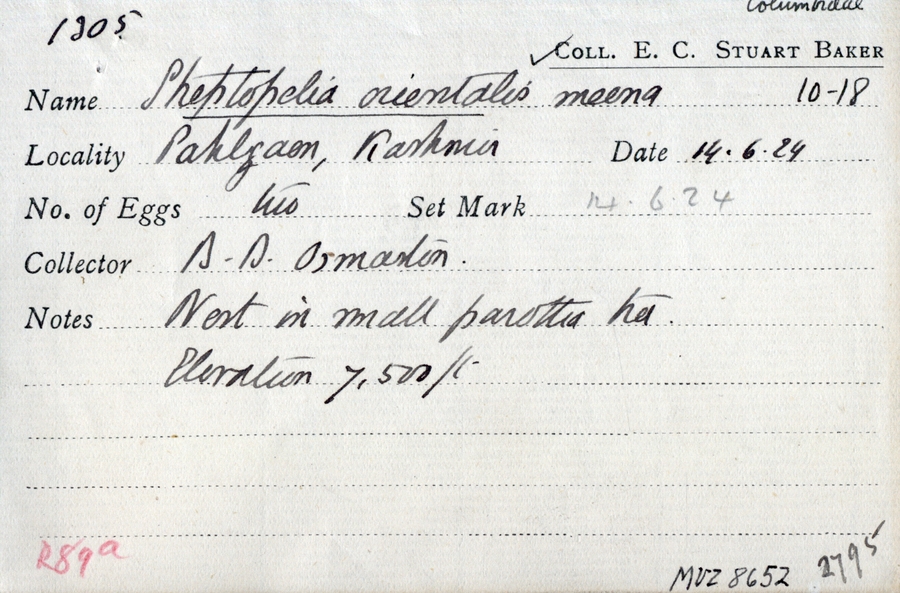 Columbidae
1305
✓ COLL. E. C. STUART BAKER
Name Streptopelia orientalis meena 10-18
Locality Pahlgaon, Kashmir Date 14.6.24
No. of Eggs two Set Mark 14.6.24
Collector B. B. Osmaston.
Notes Nest in small parottia tree.
Elevation 7,500 ft
R89a
MVZ 8652 2795